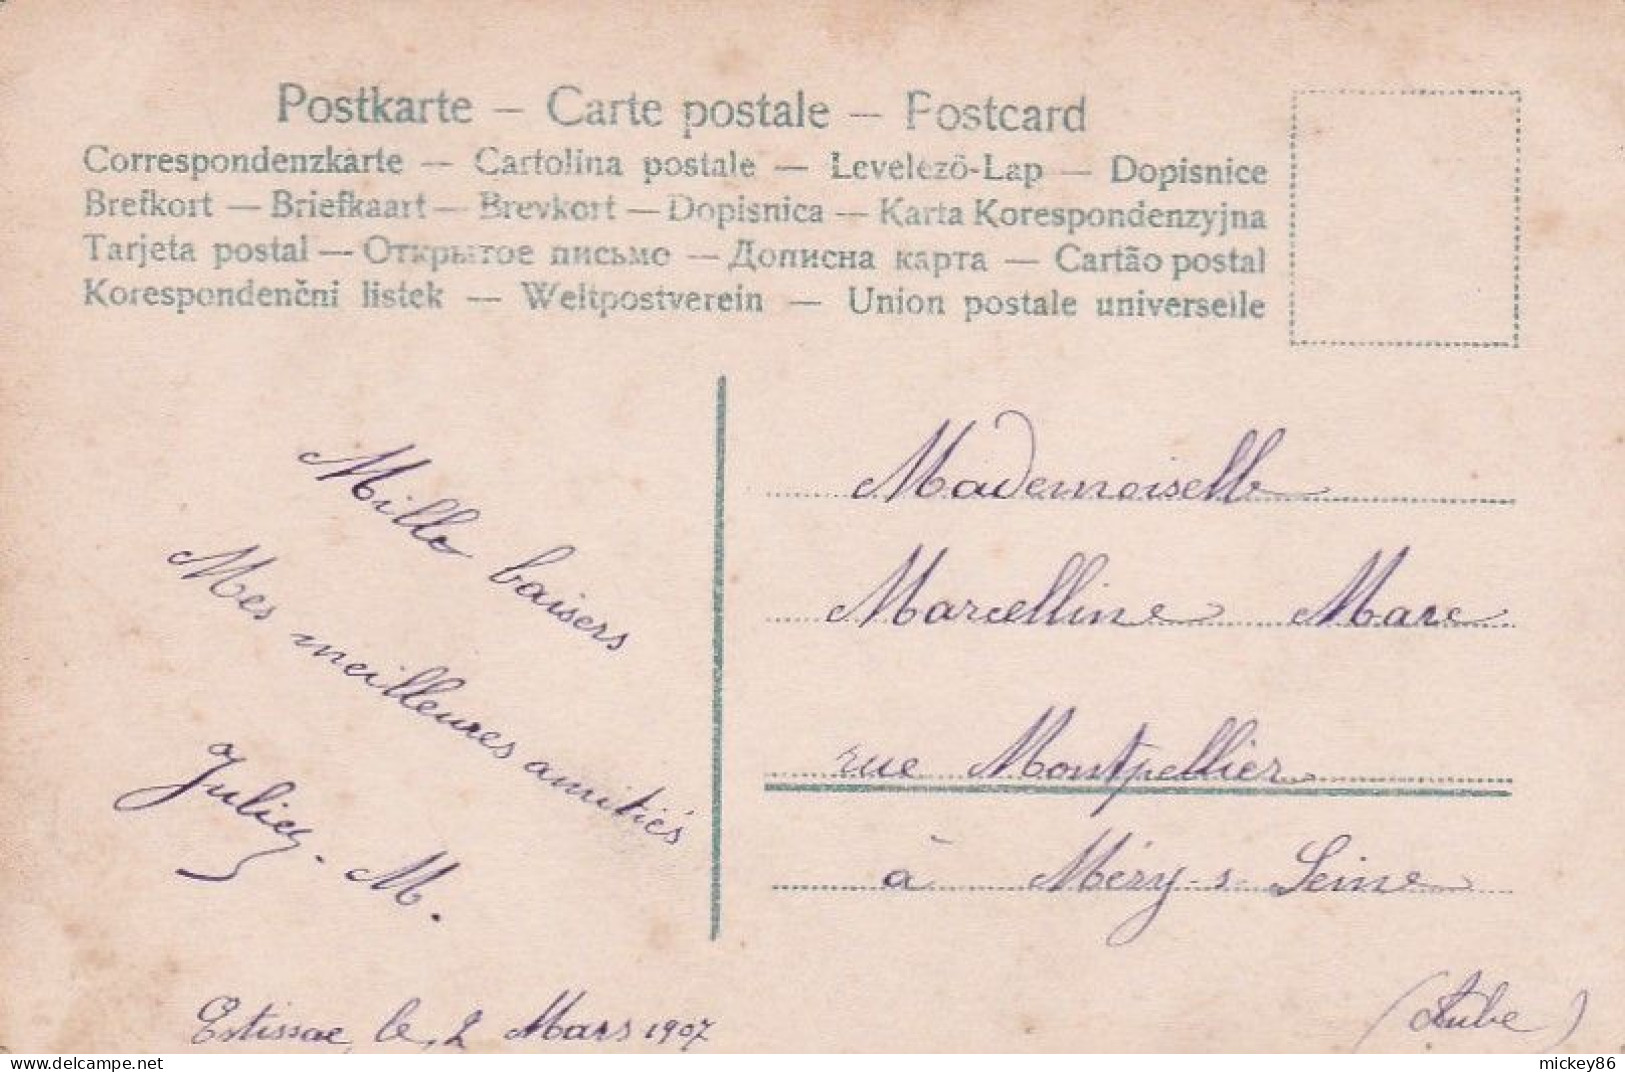 Postkarte – Carte postale – Postcard
Correspondenzkarte — Cartolina postale — Levelező-Lap — Dopisnice
Brefkort — Briefkaart — Brevkort — Dopisnica — Karta Korespondenzyjna
Tarjeta postal — Открытое письмо — Дописна карта — Cartão postal
Korespondenčni listek — Weltpostverein — Union postale universelle
Mille baisers
Mes meilleures amitiés
M.
Estissac, le, 2 Mars 1907
Mademoiselle
Marcelline Marc
rue Montpellier
à Méry-s-Seine
(Aube)
mickey86